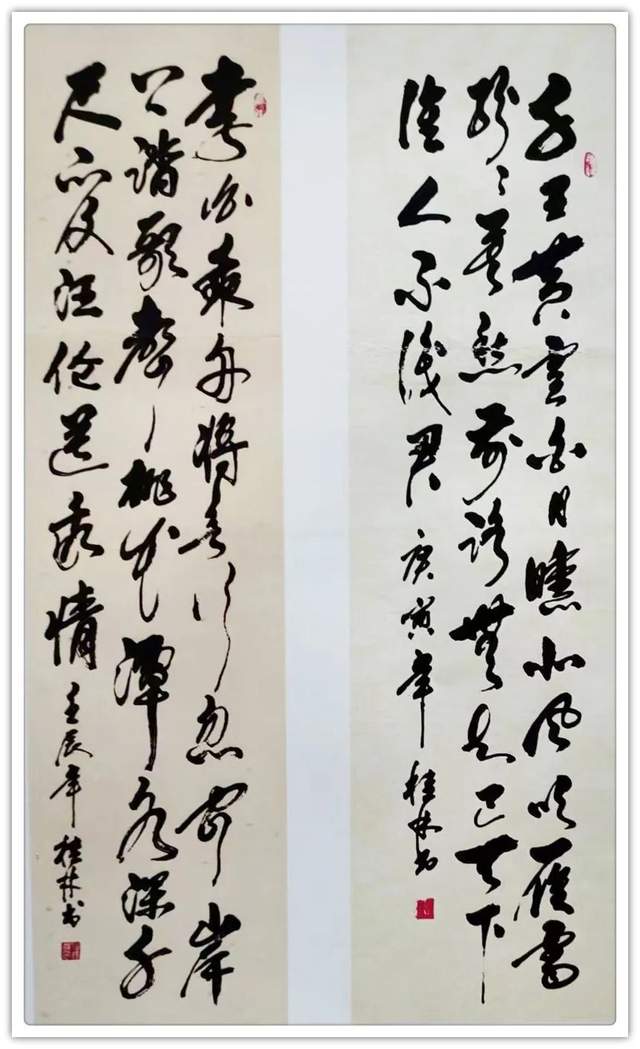 千里黄雲白日曛北风吹雁雪
纷纷莫愁前路無知己天下
谁人不识君 庚寅年 桂林书
李白乘舟将欲行忽闻岸
上踏歌聲桃花潭水深千
尺不及汪伦送我情 壬辰年 桂林书